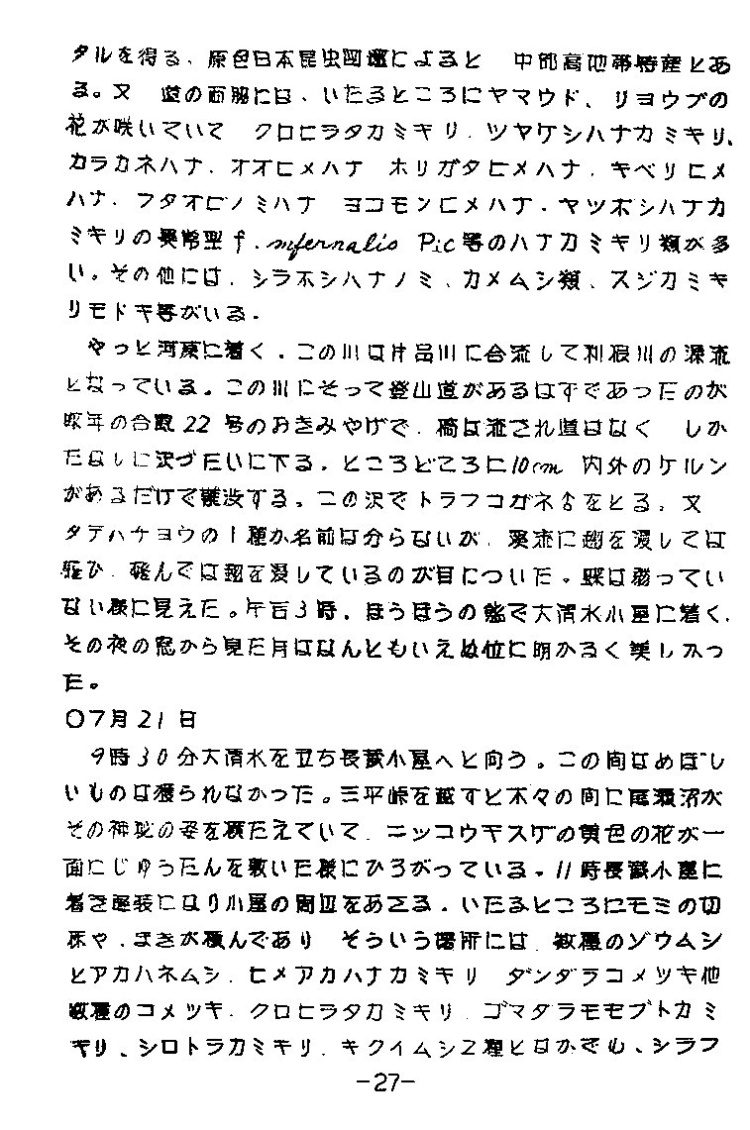 タルを得る、原色日本昆虫図鑑によると 中部高地帯特産とあ
る。又 道の両脇には、いたるところにヤマウド、リョウブの
花が咲いていて クロヒラタカミキリ、ツヤケシハナカミキリ、
カラカネハナ、オオヒメハナ ホリガタヒメハナ、キベリヒメ
ハナ、フタオビノミハナ ヨコモンヒメハナ、ヤツボシハナカ
ミキリの異常型 f. infernalis Pic 等のハナカミキリ類が多
い。その他には、シラホシハナノミ、カメムシ類、スジカミキ
リモドキ等がいる。
やっと河原に着く。この川は片品川に合流して利根川の源流
となっている。この川にそって登山道があるはずであったのが
昨年の台風22号のおきみやげで、橋は流され道はなく しか
たなしに沢づたいに下る。ところどころに10cm 内外のケルン
があるだけで難渋する。この沢でトラフコガネ♀をとる。又
タテハチョウの1種か名前は分らないが、渓流に翅を浸しては
飛び、飛んでは翅を浸しているのが目についた。蝶は弱ってい
ない様に見えた。午后3時、ほうほうの態で大清水小屋に着く、
その夜の窓から見た月はなんともいえぬ位に明かるく美しかっ
た。
○7月21日
9時30分大清水を立ち長蔵小屋へと向う。この間はめぼし
いものは獲られなかった。三平峠を越すと木々の間に尾瀬沼が
その神秘の姿を横たえていて、ニッコウキスゲの黄色の花が一
面にじゅうたんを敷いた様にひろがっている。11時長蔵小屋に
着き軽装になり小屋の周辺をあさる。いたるところにモミの切
株や、まきが積んであり そういう場所には、数種のゾウムシ
とアカハネムシ、ヒメアカハナカミキリ ダンダラコメツキ他
数種のコメツキ、クロヒラタカミキリ、ゴマダラモモブトカミ
キリ、シロトラカミキリ、キクイムシ2種となかでも、シラフ
-27-